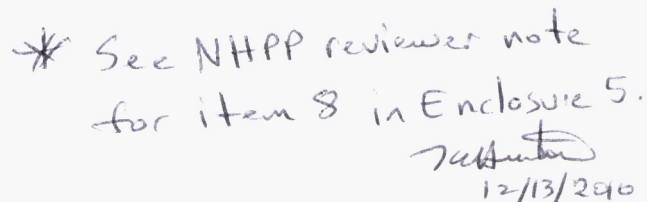 * See NHPP reviewer note
for item 8 in Enclosure 5.
12/13/2010